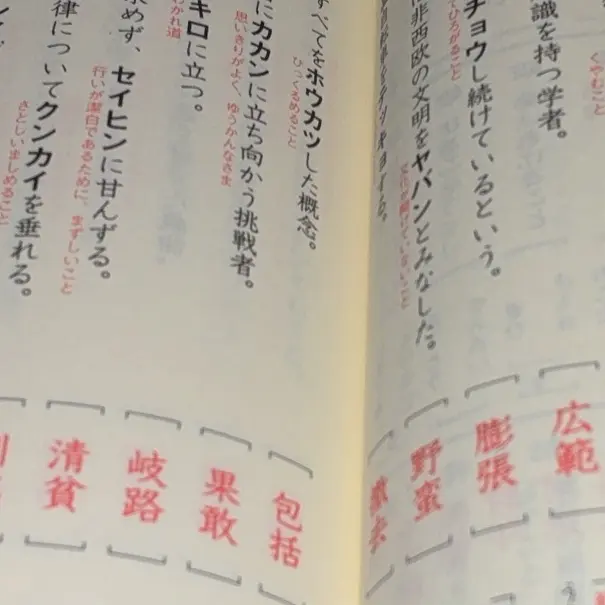 識を持つ学者。
くやむこと
広範
チョウし続けているという。
てひろがること
膨張
に非西欧の文明をヤバンとみなした。
文化が開けていないこと
野蛮
撤去
すべてをホウカツした概念。
ひっくるめること
包括
にカカンに立ち向かう挑戦者。
思いきりがよく、ゆうかんなさま
果敢
キロに立つ。
わかれ道
岐路
求めず、セイヒンに甘んずる。
行いが潔白であるために、まずしいこと
清貧
律についてクンカイを垂れる。
さとしいましめること